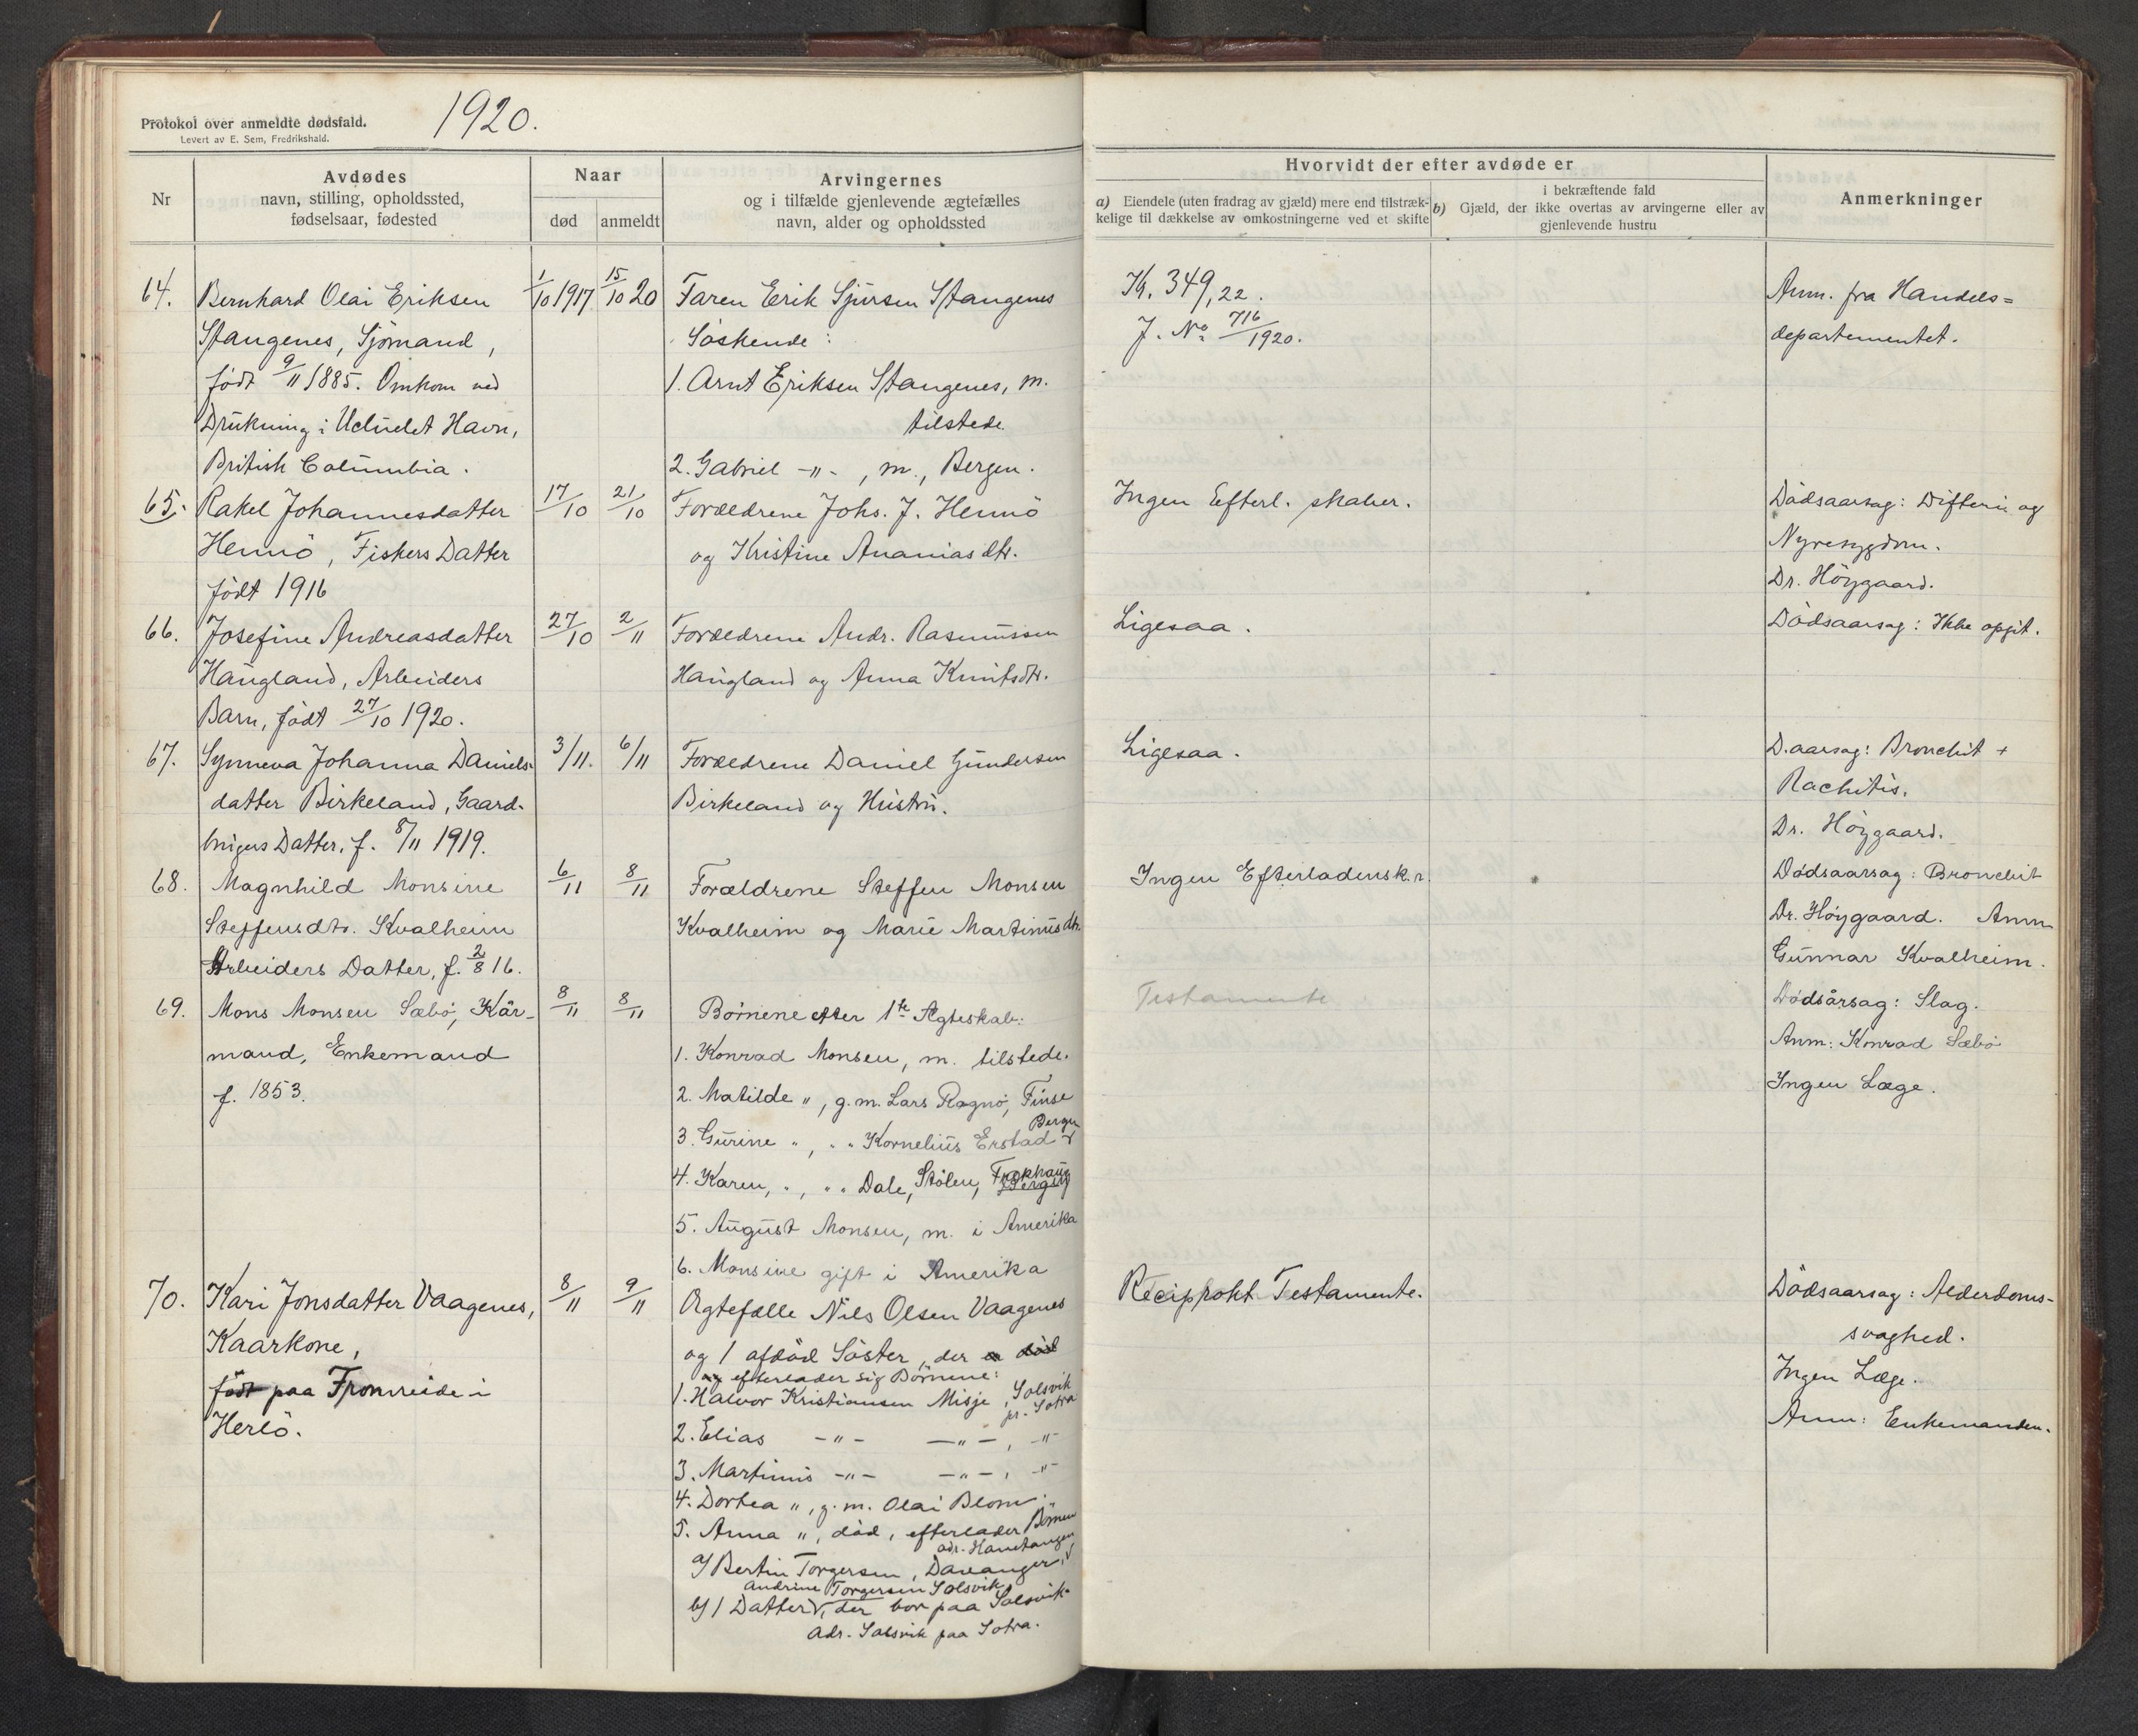 Protokol over anmeldte dødsfald.
Levert av E. Sem, Fredrikshald.
1920.
Nr
Avdødes
navn, stilling, opholdssted,
fødselsaar, fødested
Naar
død
anmeldt
Arvingernes
og i tilfælde gjenlevende ægtefælles
navn, alder og opholdssted
Hvorvidt der efter avdøde er
a) Eiendele (uten fradrag av gjæld) mere end tilstræk-
kelige til dækkelse av omkostningerne ved et skifte
i bekræftende fald
b) Gjæld, der ikke overtas av arvingerne eller av
gjenlevende hustru
Anmerkninger
64.
Bernhard Olai Eriksen
Stangenes, Sjömand,
født 9/11 1885. Omkom ved
Drukning i Havn,
British Columbia.
1/10 1917
15/10 20
Faren Erik Sjursen Stangenes
Söskende:
1. Arnt Eriksen Stangenes, m.
tilstede
2. Gabriel -"-, m., Bergen.
Kr. 349,22.
J. No. 716/1920.
Anm. fra Handels=
departementet.
65.
Rakel Johannesdatter
Hennö, Fiskers Datter
født 1916
17/10
21/10
Forældrene Johs. J. Hennö
og Kristine Ananiasdtr.
Ingen Efterl. skaber.
Dödsaarsag: Difteri og
Nyresygdom.
Dr. Höygaard.
66.
Josefine Andreasdatter
Haugland, Arbeiders
Barn, født 27/10 1920.
27/10
2/11
Forældrene Andr. Rasmussen
Haugland og Anna Knutsdtr.
Ligesaa.
Dödsaarsag: Ikke opgit.
67.
Synneva Johanna Daniels-
datter Birkeland, Gaard-
brugers Datter, f. 8/11 1919.
3/11.
6/11
Forældrene Daniel Gundersen
Birkeland og Hustru.
Ligesaa.
D.aarsag: Bronchit +
Rachitis.
Dr. Höygaard.
68.
Magnhild Monsine
Steffensdtr. Kvalheim
Arbeiders Datter, f. 2/8 16.
6/11
8/11
Forældrene Steffen Monsen
Kvalheim og Marie Martinusdtr.
Ingen Efterladensk.r.
Dødsaarsag: Bronchit
Dr. Høygaard. Anm
Gunnar Kvalheim.
69.
Mons Monsen Sæbø, Kår-
mand, Enkemand
f. 1853.
8/11
8/11
Børnene efter 1ste Ægteskab:
1. Konrad Monsen, m. tilstede.
2. Matilde ", g.m. Lars Rognø, Finse
Bergen
3. Gurine ", " " Kornelius Erstad
4. Karen, ", " " Dale, Stölen, Frekhaug
5. August Monsen, m. i Amerika
6. Monsine gift i Amerika
Testamente
Dødsårsag: Slag.
Anm: Konrad Sæbø
Ingen Læge.
70.
Kari Jonsdatter Vaagenes,
Kaarkone,
født paa Fromreide i
Herlö.
8/11
9/11
Ægtefælle Nils Olsen Vaagenes
og 1 afdöd Söster, der er död
og efterlader sig Börnene:
1. Halvor Kristiansen Misje, Solsvik
pr. Sotra
2. Elias -"- -"-, -"-
3. Martinus -"- -"-, -"-
4. Dortea ", g.m. Olai Blom.
5. Anna ", död, efterlader Börnene
adr. Hanetangen
a/ Bertin Torgersen, Davanger,
Andrine Torgersen Solsvik
b/ 1 Datter, der bor paa Solsvik.
Adr. Solsvik paa Sotra.
Reciprokt Testamente.
Dödsaarsag: Alderdoms-
svaghed.
Ingen Læge.
Anm: Enkemanden.